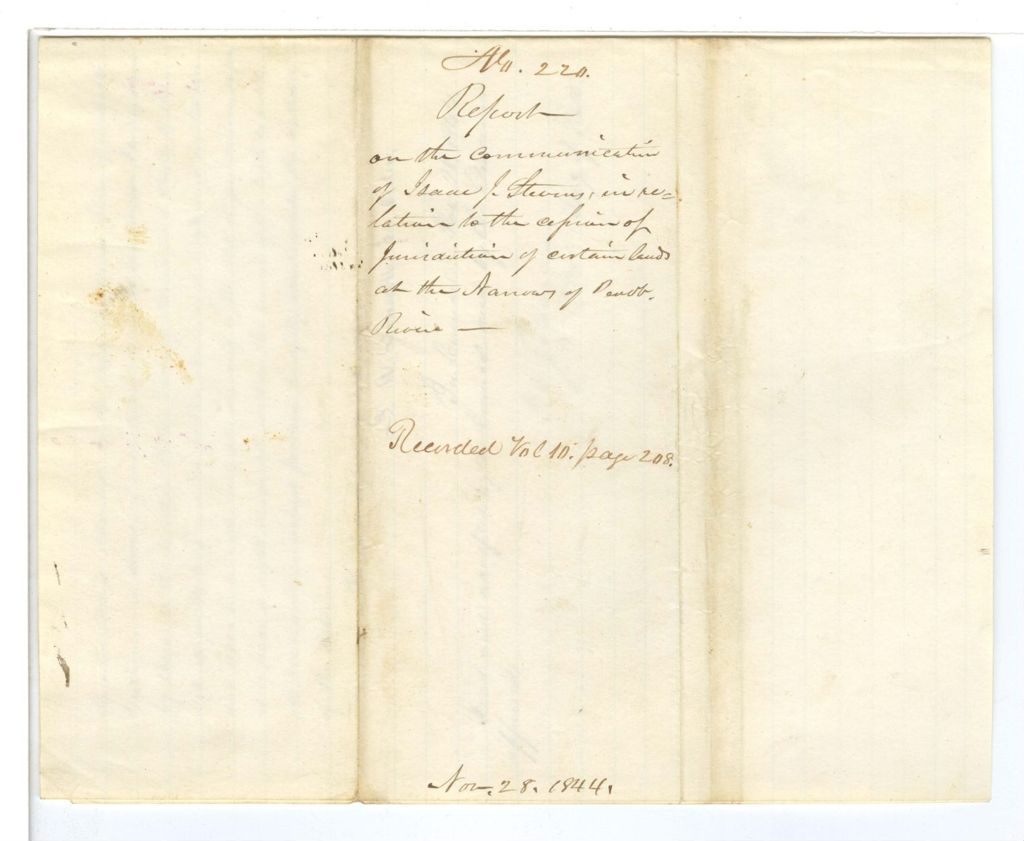 No. 220.
Report
on the communication
of Isaac J. Stevens, in re=
lation to the cession of
Jurisdiction of certain lands
at the Narrows of Penob.
River —
Recorded Vol 10. page 208.
Nov. 28. 1844.